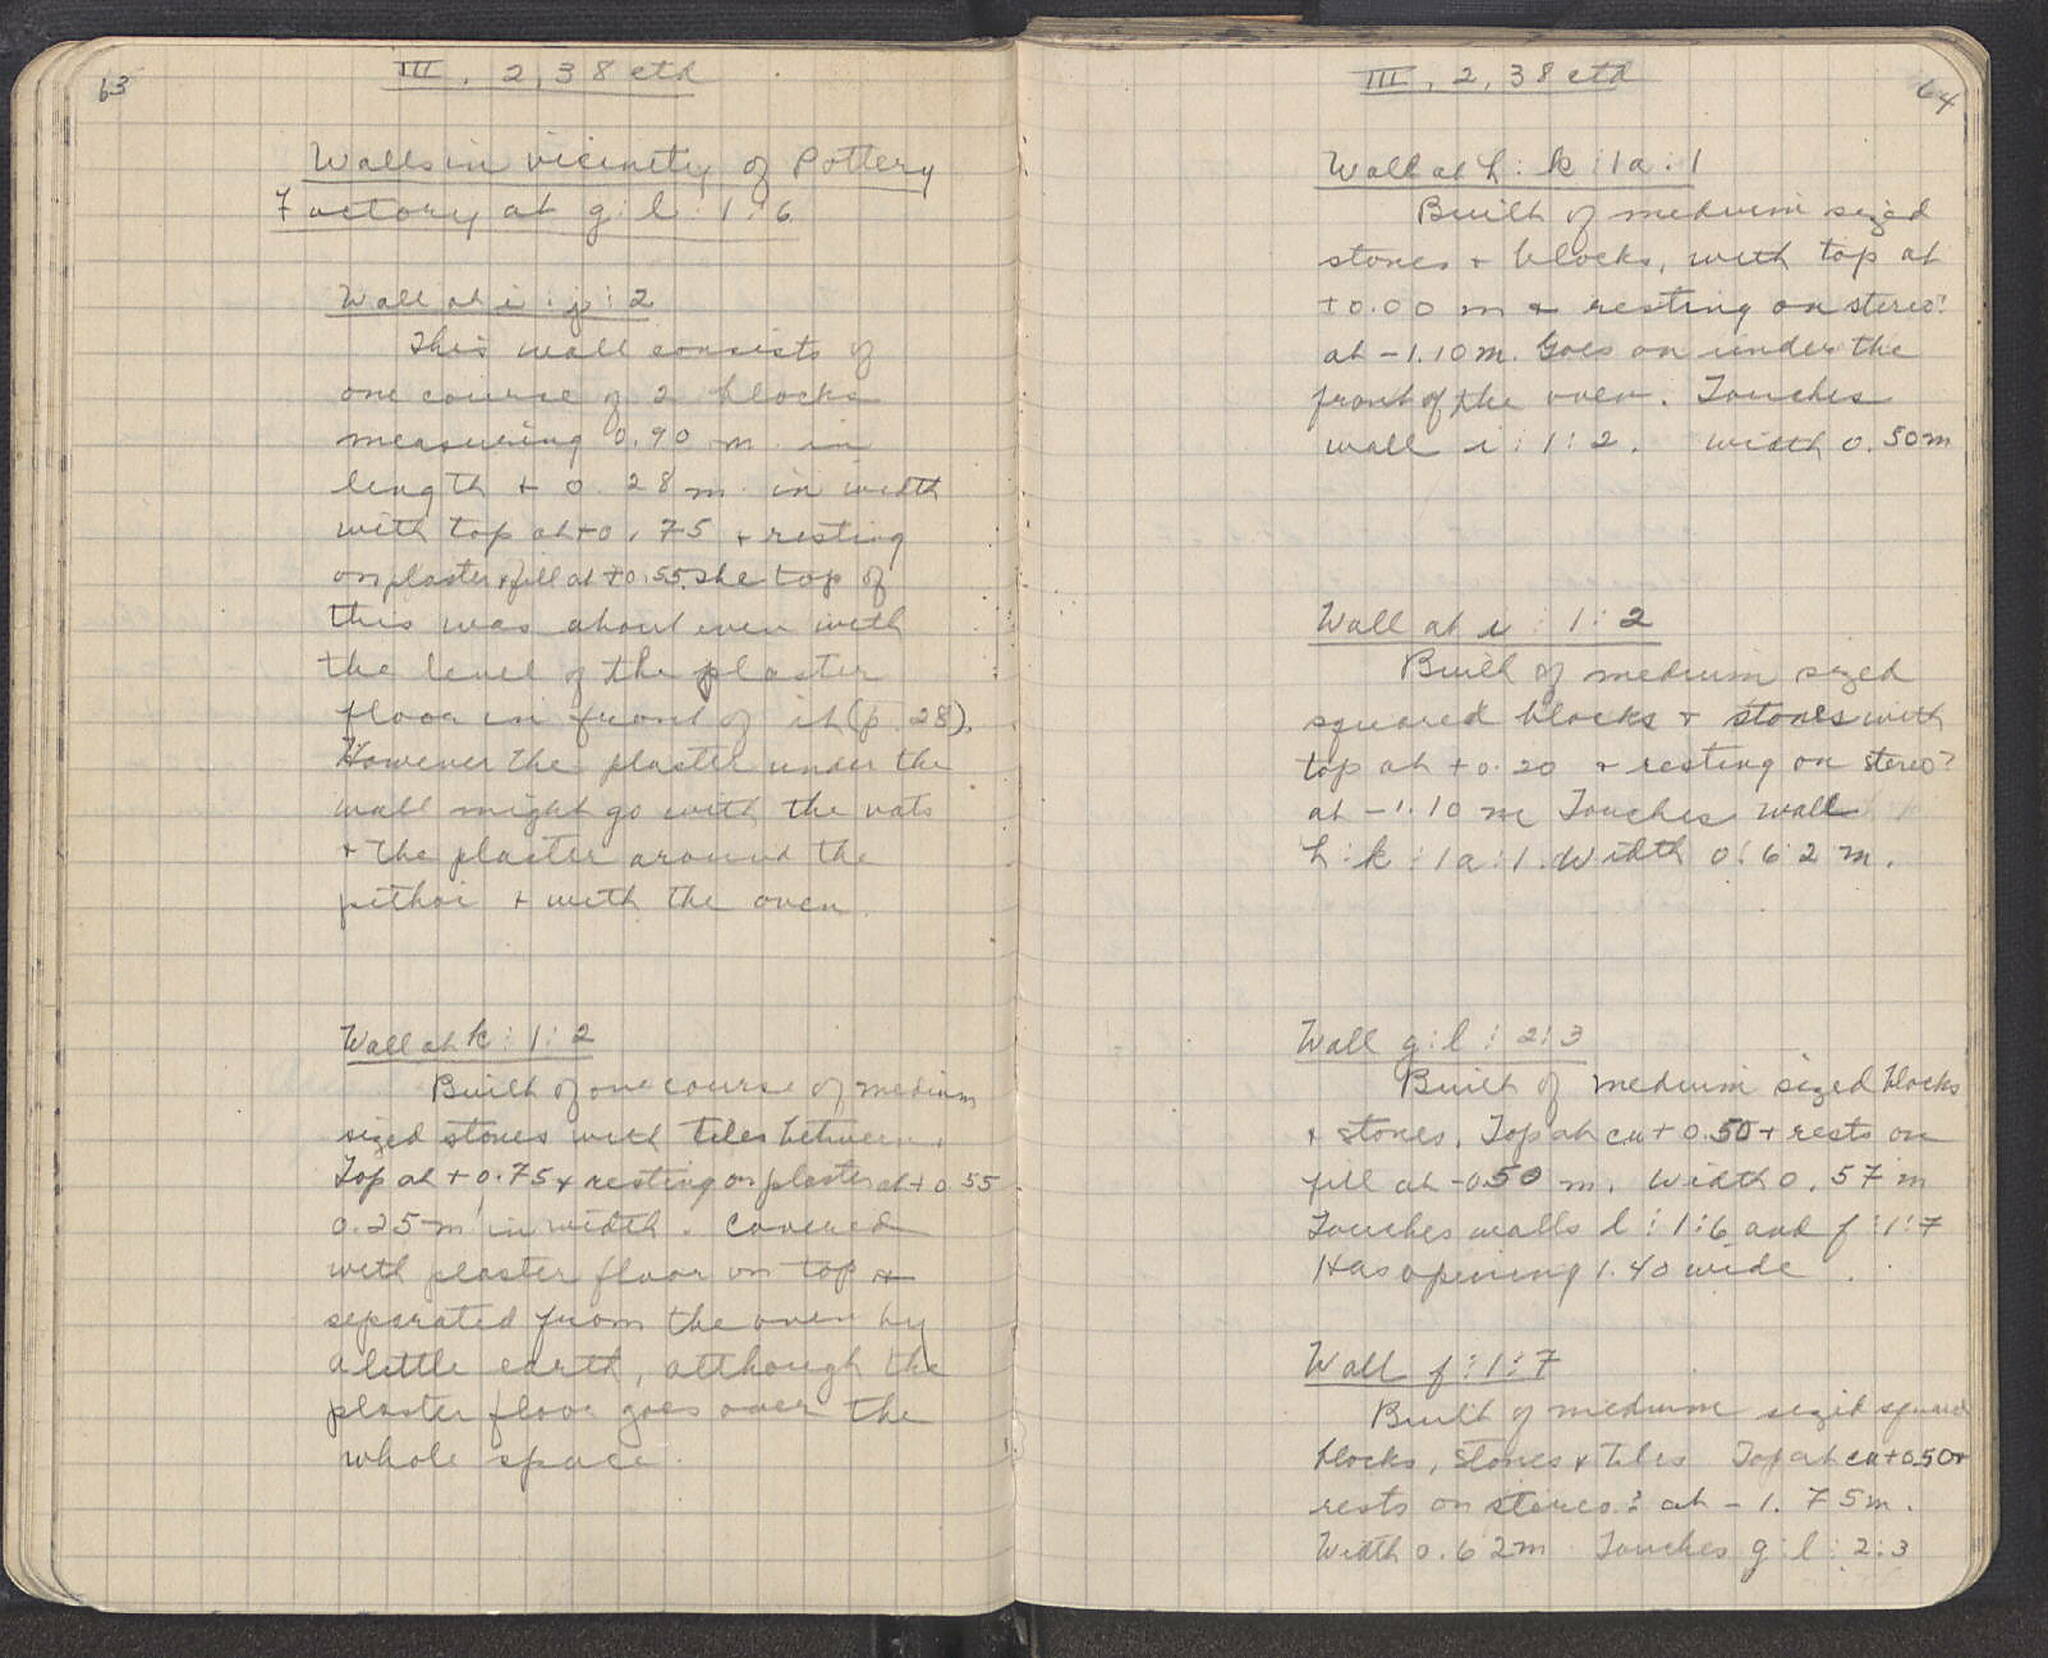 63
III, 2, 38 etd
Walls in vicinity of Pottery
Factory at g:l:1:6
Wall at i:j:2
This wall consists of
one course of 2 blocks
measuring 0.90 m. in
length + 0.28 m. in width
with top at +0.75 + resting
on plaster + fill at +0.55. The top of
this was about even with
the level of the plaster
floor in front of it (p. 28).
However the plaster under the
wall might go with the vats
+ the plaster around the
pithoi + with the oven.
Wall at k:1:2
Built of one course of medium
sized stones with tiles between.
Top at +0.75 + resting on plaster at +0.55
0.25 m in width. Covered
with plaster floor on top +
separated from the oven by
a little earth, although the
plaster floor goes over the
whole space.
64
III, 2, 38 etd
Wall at h:k:1a:1
Built of medium sized
stones + blocks, with top at
+0.00 m + resting on stereo?
at -1.10 m. Goes on under the
front of the oven. Touches
wall i:1:2. Width 0.50 m
Wall at i:1:2
Built of medium sized
squared blocks + stones with
top at +0.20 + resting on stereo?
at -1.10 m Touches wall
h:k:1a:1. Width 0.62 m.
Wall g:l:2:3
Built of medium sized blocks
+ stones. Top at ca +0.50 + rests on
fill at -0.50 m. Width 0.57 m
Touches walls l:1:6 and f:1:7
Has opening 1.40 wide.
Wall f:1:7
Built of medium sized squared
blocks, stones + tiles Top at ca +0.50 +
rests on stereo? at -1.75 m.
Width 0.62 m Touches g:l:2:3